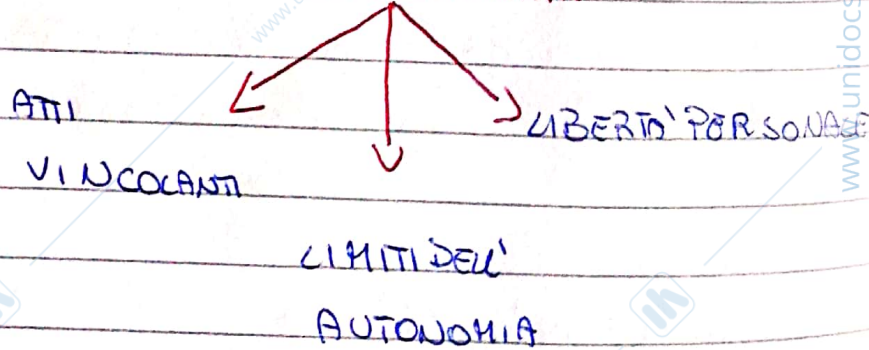 ATTI
VINCOLANTI
LIBERTA' PERSONALE
LIMITI DELL'
AUTONOMIA
www.unidocs